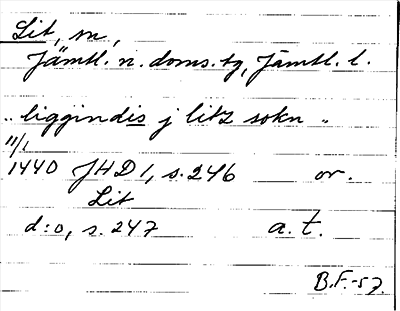 Lit, sn,
Jämtl. n. doms.tg, Jämtl. l.
„ liggindis j litz sokn „
11/1
1440 JHD 1, s. 246 or.
Lit
d:o, s. 247 a. t.
B.F.-57.